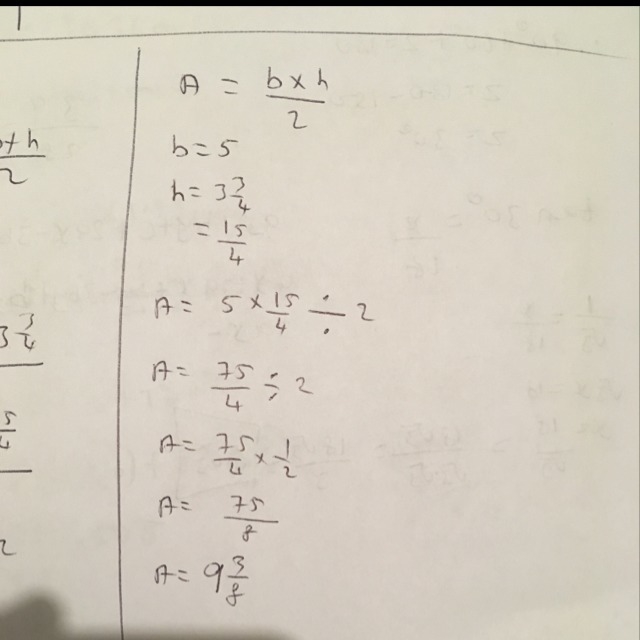 A = b×h/2
b = 5
h = 3 3/4
= 15/4
A = 5 × 15/4 ÷ 2
A = 75/4 ÷ 2
A = 75/4 × 1/2
A = 75/8
A = 9 3/8